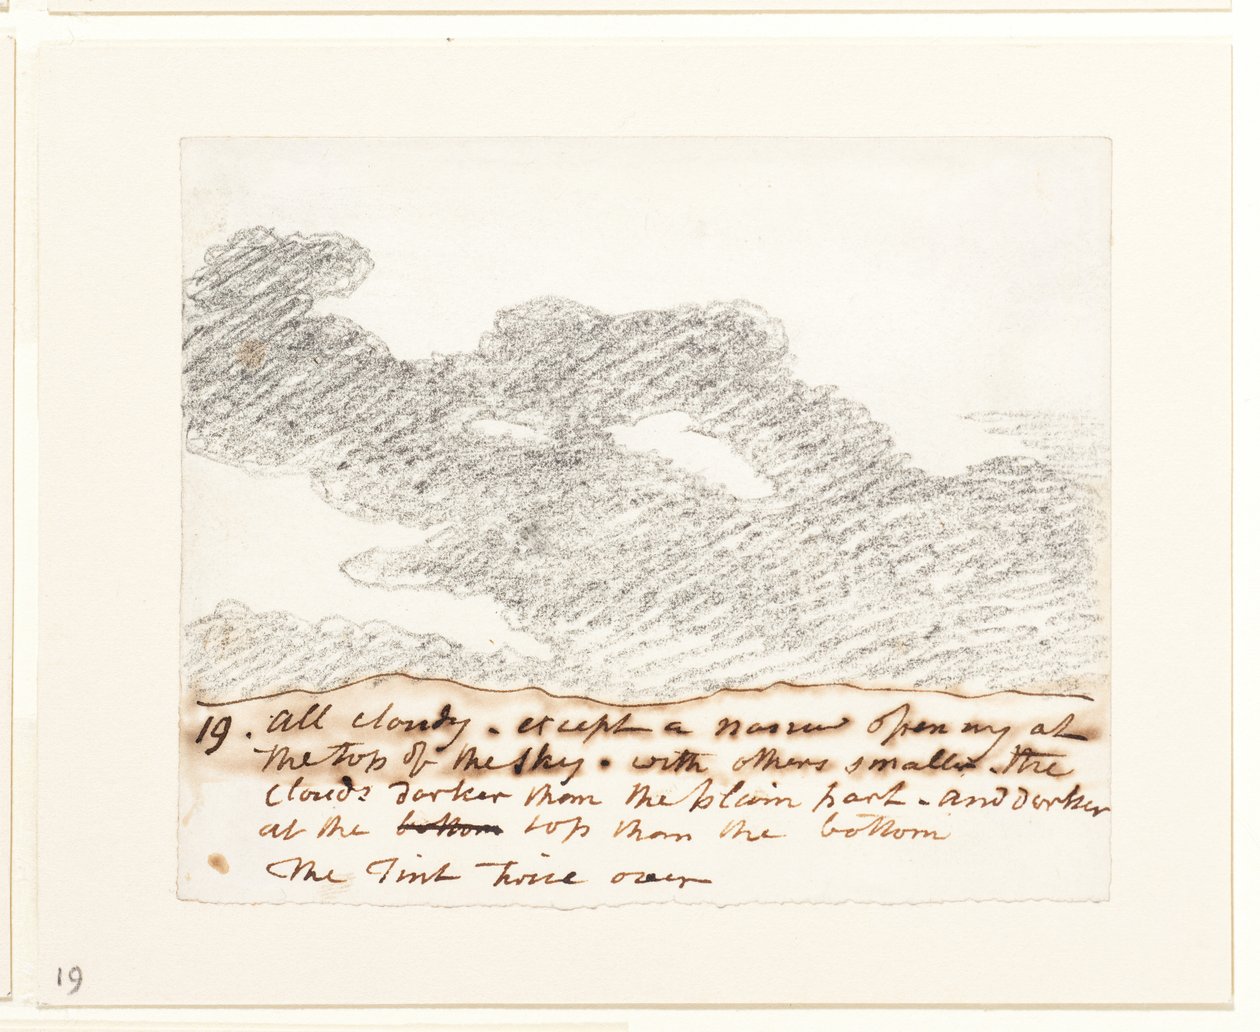 19. All cloudy. except a narrow opening at
the top of the sky. with others smaller. the
clouds darker than the plain part. and darker
at the bottom top than the bottom
The Tint twice over
19